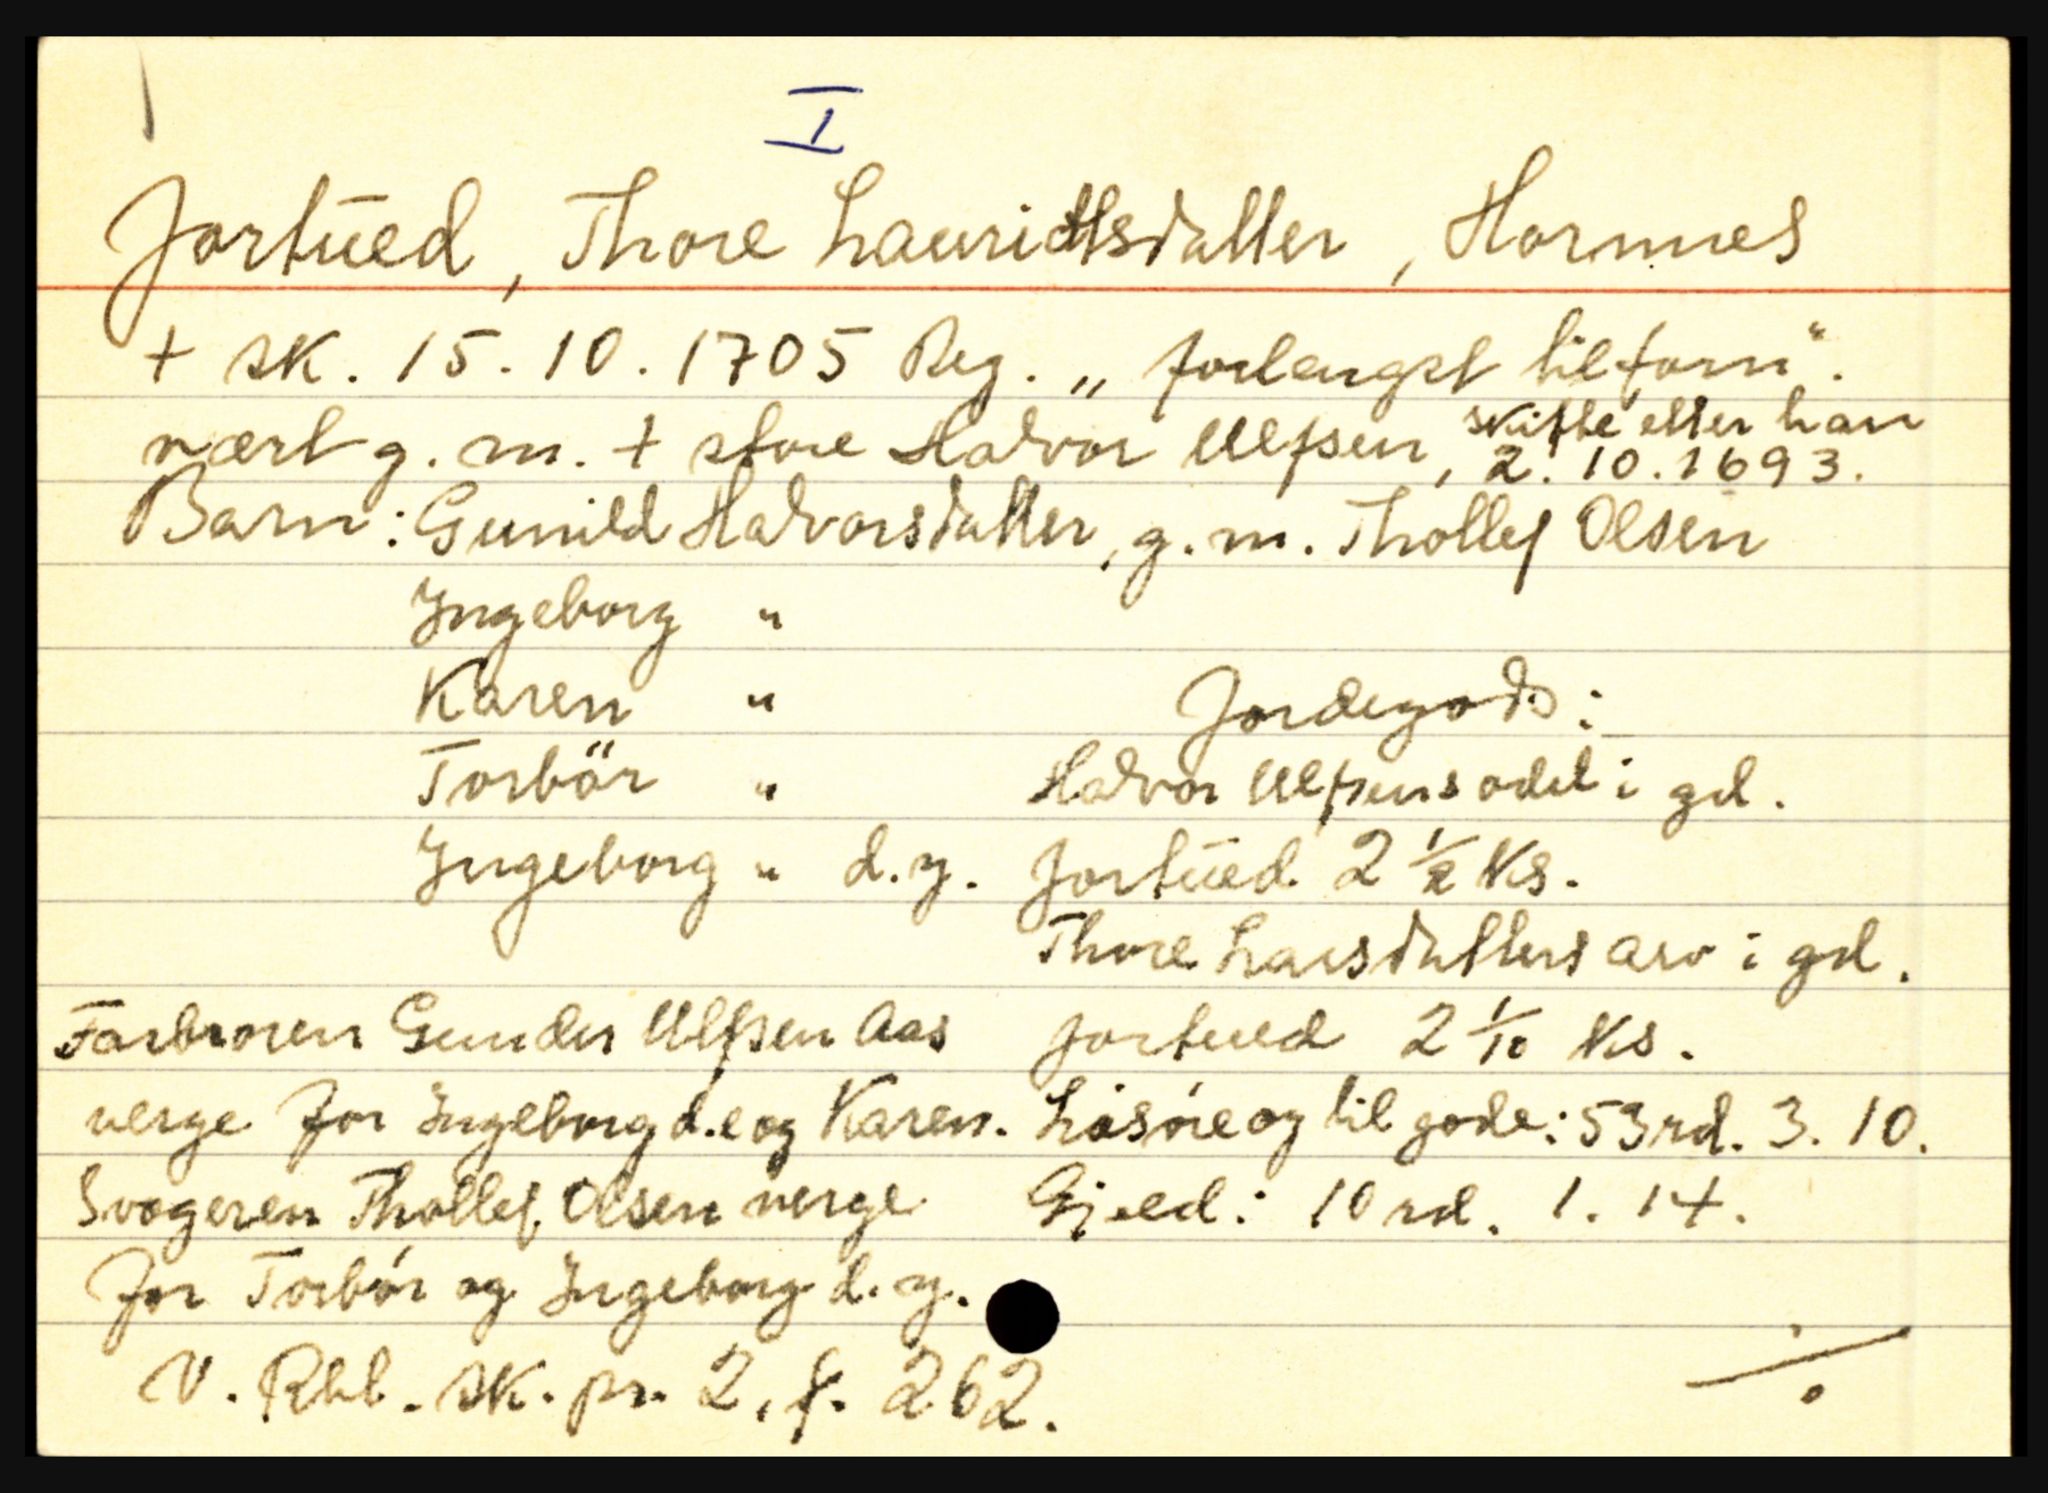 I
Jortüed, Thore Lauridtsdatter, Hornnes
+ sk. 15.10.1705 Reg. „forlengst tilforn“.
vært g. m. + store Halvor Ulfsen, skifte etter han 2.10.1693.
Barn: Gunild Halvorsdatter, g. m. Thollef Olsen
Ingeborg "
Karen " Jordegods:
Torbör " Halvor Ulfsens odel i gd.
Ingeborg " d.y. Jortüed 2 1/2 ks.
Thore Larsdatters arv i gd.
Farbroren Gunder Ulfsen Aas Jortued 2 1/10 ks.
verge for Ingeborg d.e og Karen. Lösöre og til gode: 53 rd. 3. 10.
Svogeren Thollef Olsen verge Gjeld: 10 rd. 1. 14.
for Torbör og Ingeborg d.y.
V. Rbl. sk. pr. 2, f. 262.